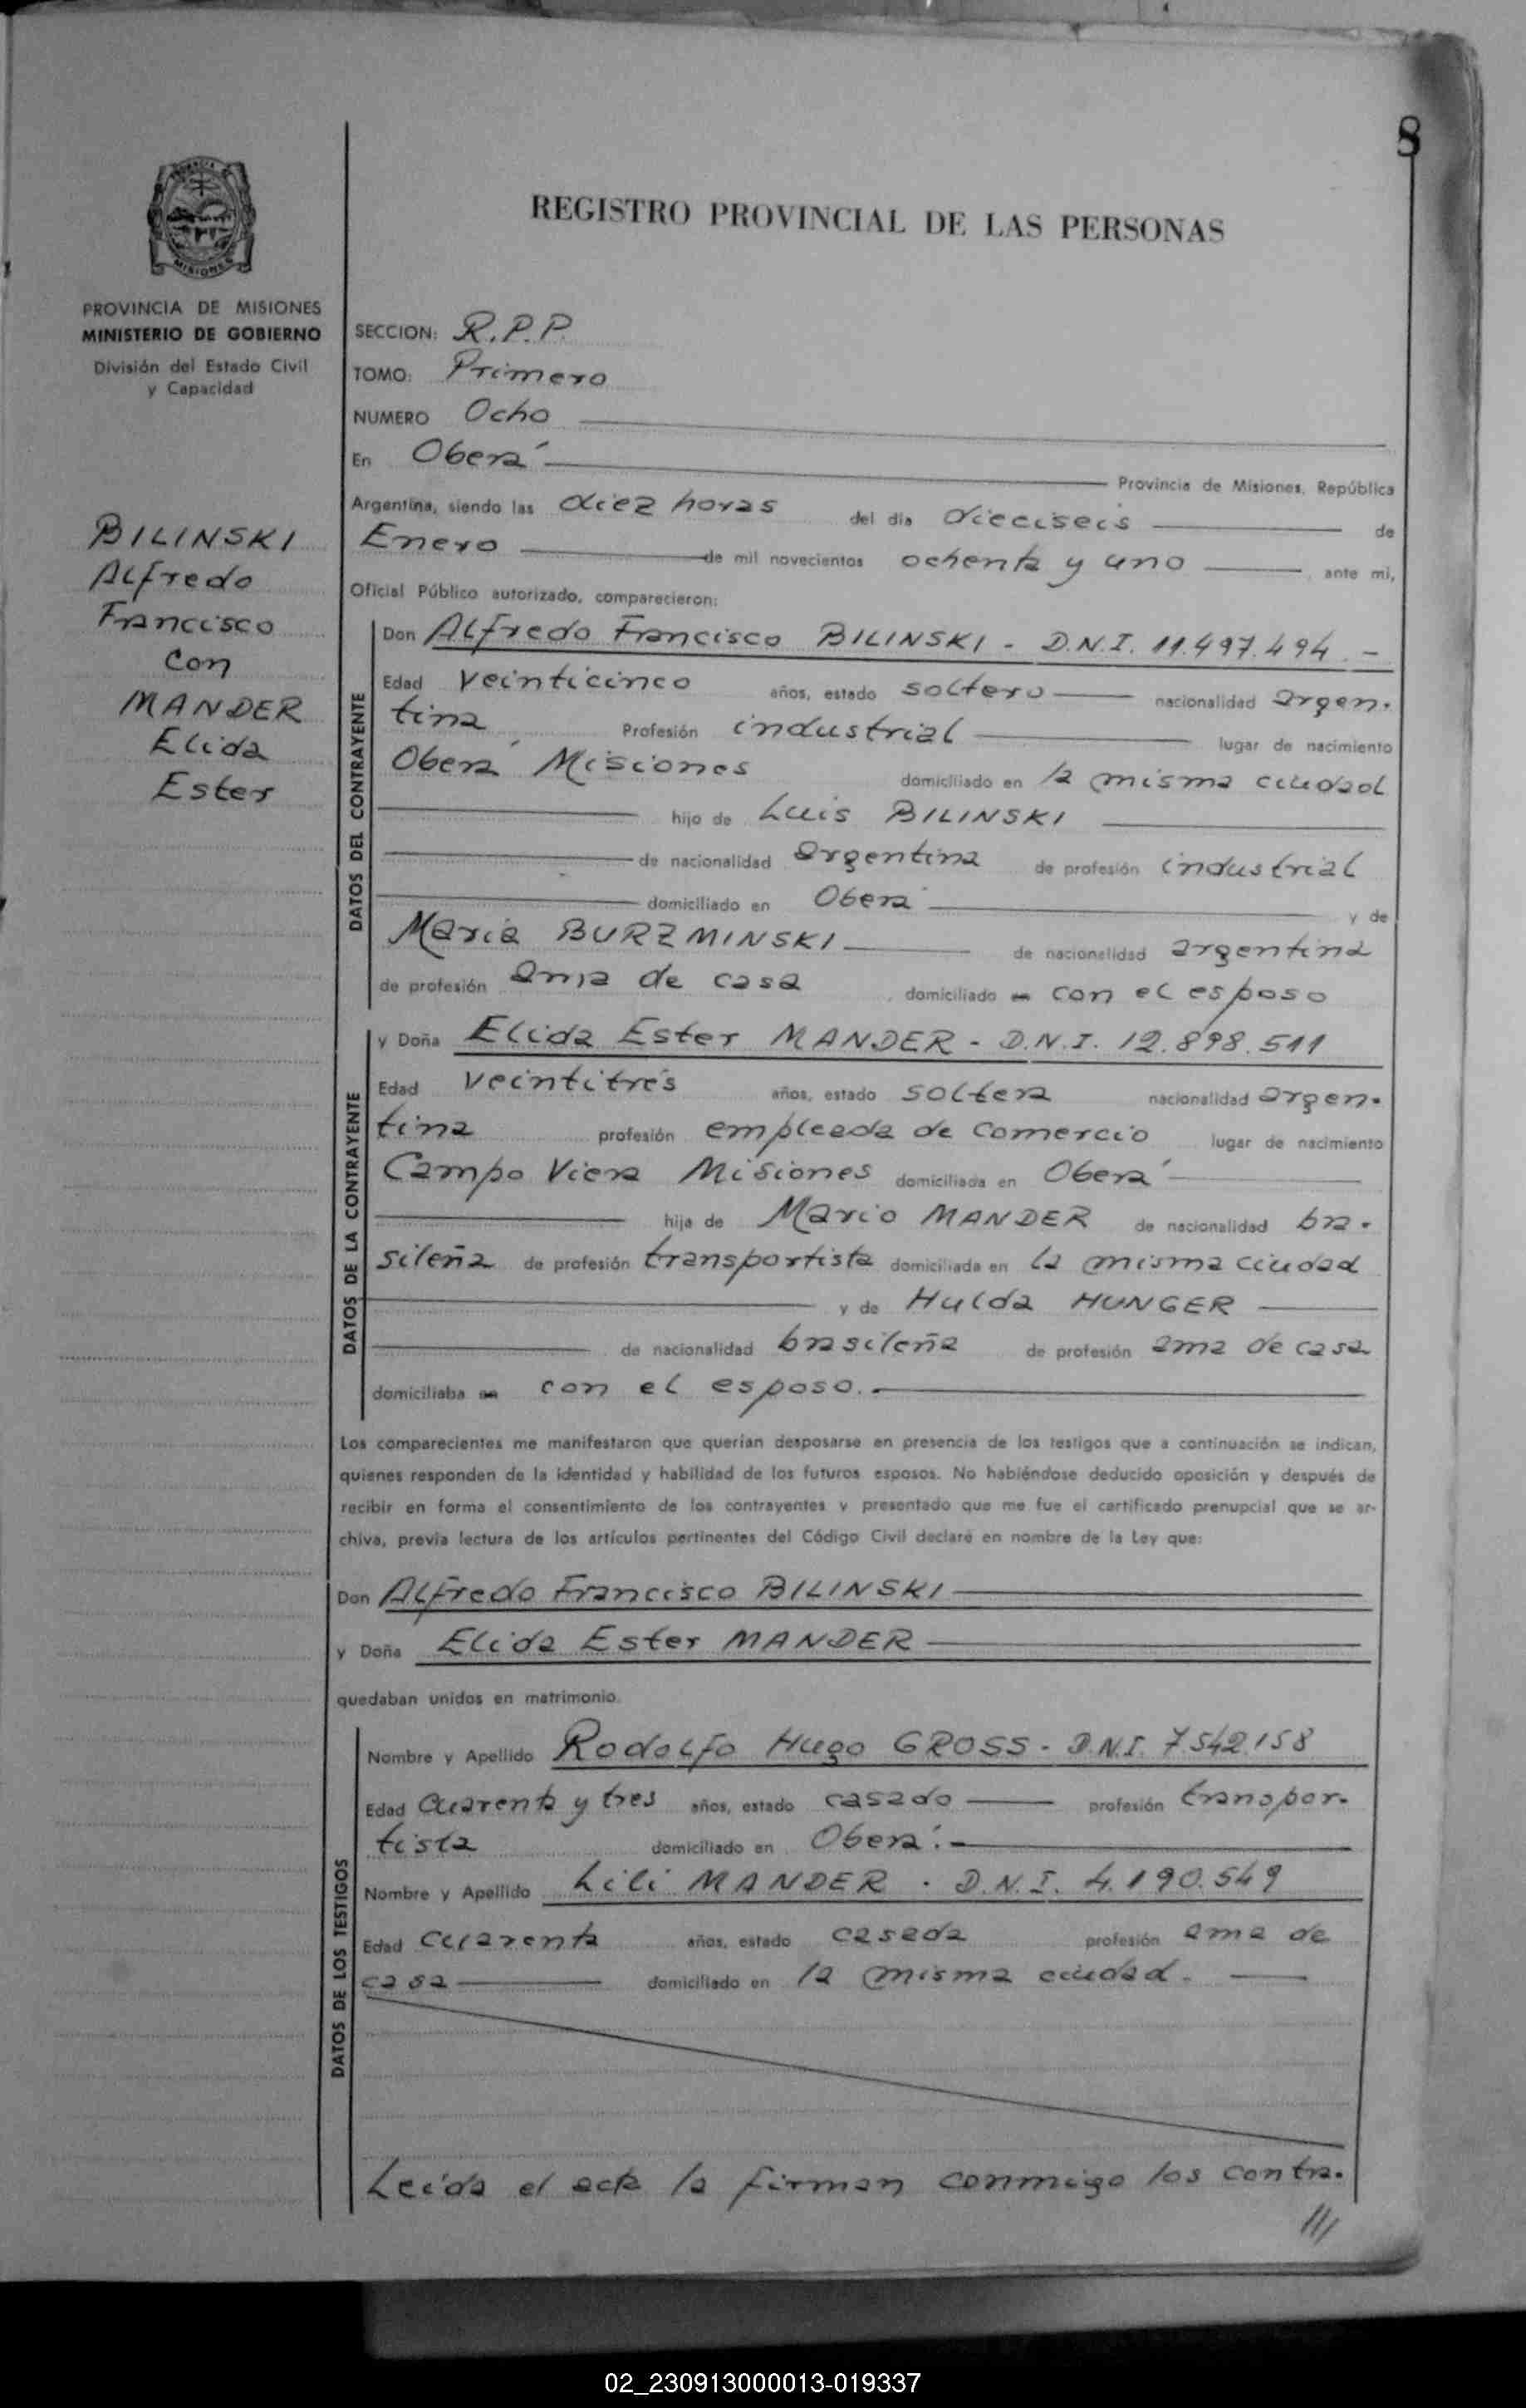 8
REGISTRO PROVINCIAL DE LAS PERSONAS
MISIONES
PROVINCIA DE MISIONES
MINISTERIO DE GOBIERNO
División del Estado Civil
y Capacidad
BILINSKI
Alfredo
Francisco
con
MANDER
Elida
Ester
SECCION: R.P.P.
TOMO: Primero
NUMERO Ocho
En Oberá Provincia de Misiones, República
Argentina, siendo las diez horas del día dieciseis de
Enero de mil novecientos ochenta y uno ante mi,
Oficial Público autorizado, comparecieron:
DATOS DEL CONTRAYENTE
Don Alfredo Francisco BILINSKI - D.N.I. 11.497.494.-
Edad veinticinco años, estado soltero nacionalidad argen-
tina Profesión industrial lugar de nacimiento
Oberá Misiones domiciliado en la misma ciudad
hijo de Luis BILINSKI
de nacionalidad argentina de profesión industrial
domiciliado en Oberá y de
Maria BURZMINSKI de nacionalidad argentina
de profesión ama de casa domiciliado en con el esposo
DATOS DE LA CONTRAYENTE
y Doña Elida Ester MANDER - D.N.I. 12.898.511
Edad veintitrés años, estado soltera nacionalidad argen-
tina profesión empleada de comercio lugar de nacimiento
Campo Viera Misiones domiciliada en Oberá
hija de Mario MANDER de nacionalidad bra-
sileña de profesión transportista domiciliada en la misma ciudad
y de Hulda HUNGER
de nacionalidad brasileña de profesión ama de casa
domiciliaba en con el esposo.-
Los comparecientes me manifestaron que querían desposarse en presencia de los testigos que a continuación se indican,
quienes responden de la identidad y habilidad de los futuros esposos. No habiéndose deducido oposición y después de
recibir en forma el consentimiento de los contrayentes y presentado que me fue el certificado prenupcial que se ar-
chiva, previa lectura de los artículos pertinentes del Código Civil declaré en nombre de la Ley que:
Don Alfredo Francisco BILINSKI
y Doña Elida Ester MANDER
quedaban unidos en matrimonio.
DATOS DE LOS TESTIGOS
Nombre y Apellido Rodolfo Hugo GROSS - D.N.I. 7.542.158
Edad cuarenta y tres años, estado casado profesión transpor-
tista domiciliado en Oberá.-
Nombre y Apellido Lili MANDER - D.N.I. 4.190.549
Edad cuarenta años, estado casada profesión ama de
casa domiciliado en la misma ciudad.
Leida el acta la firman conmigo los contra-
///
02_230913000013-019337